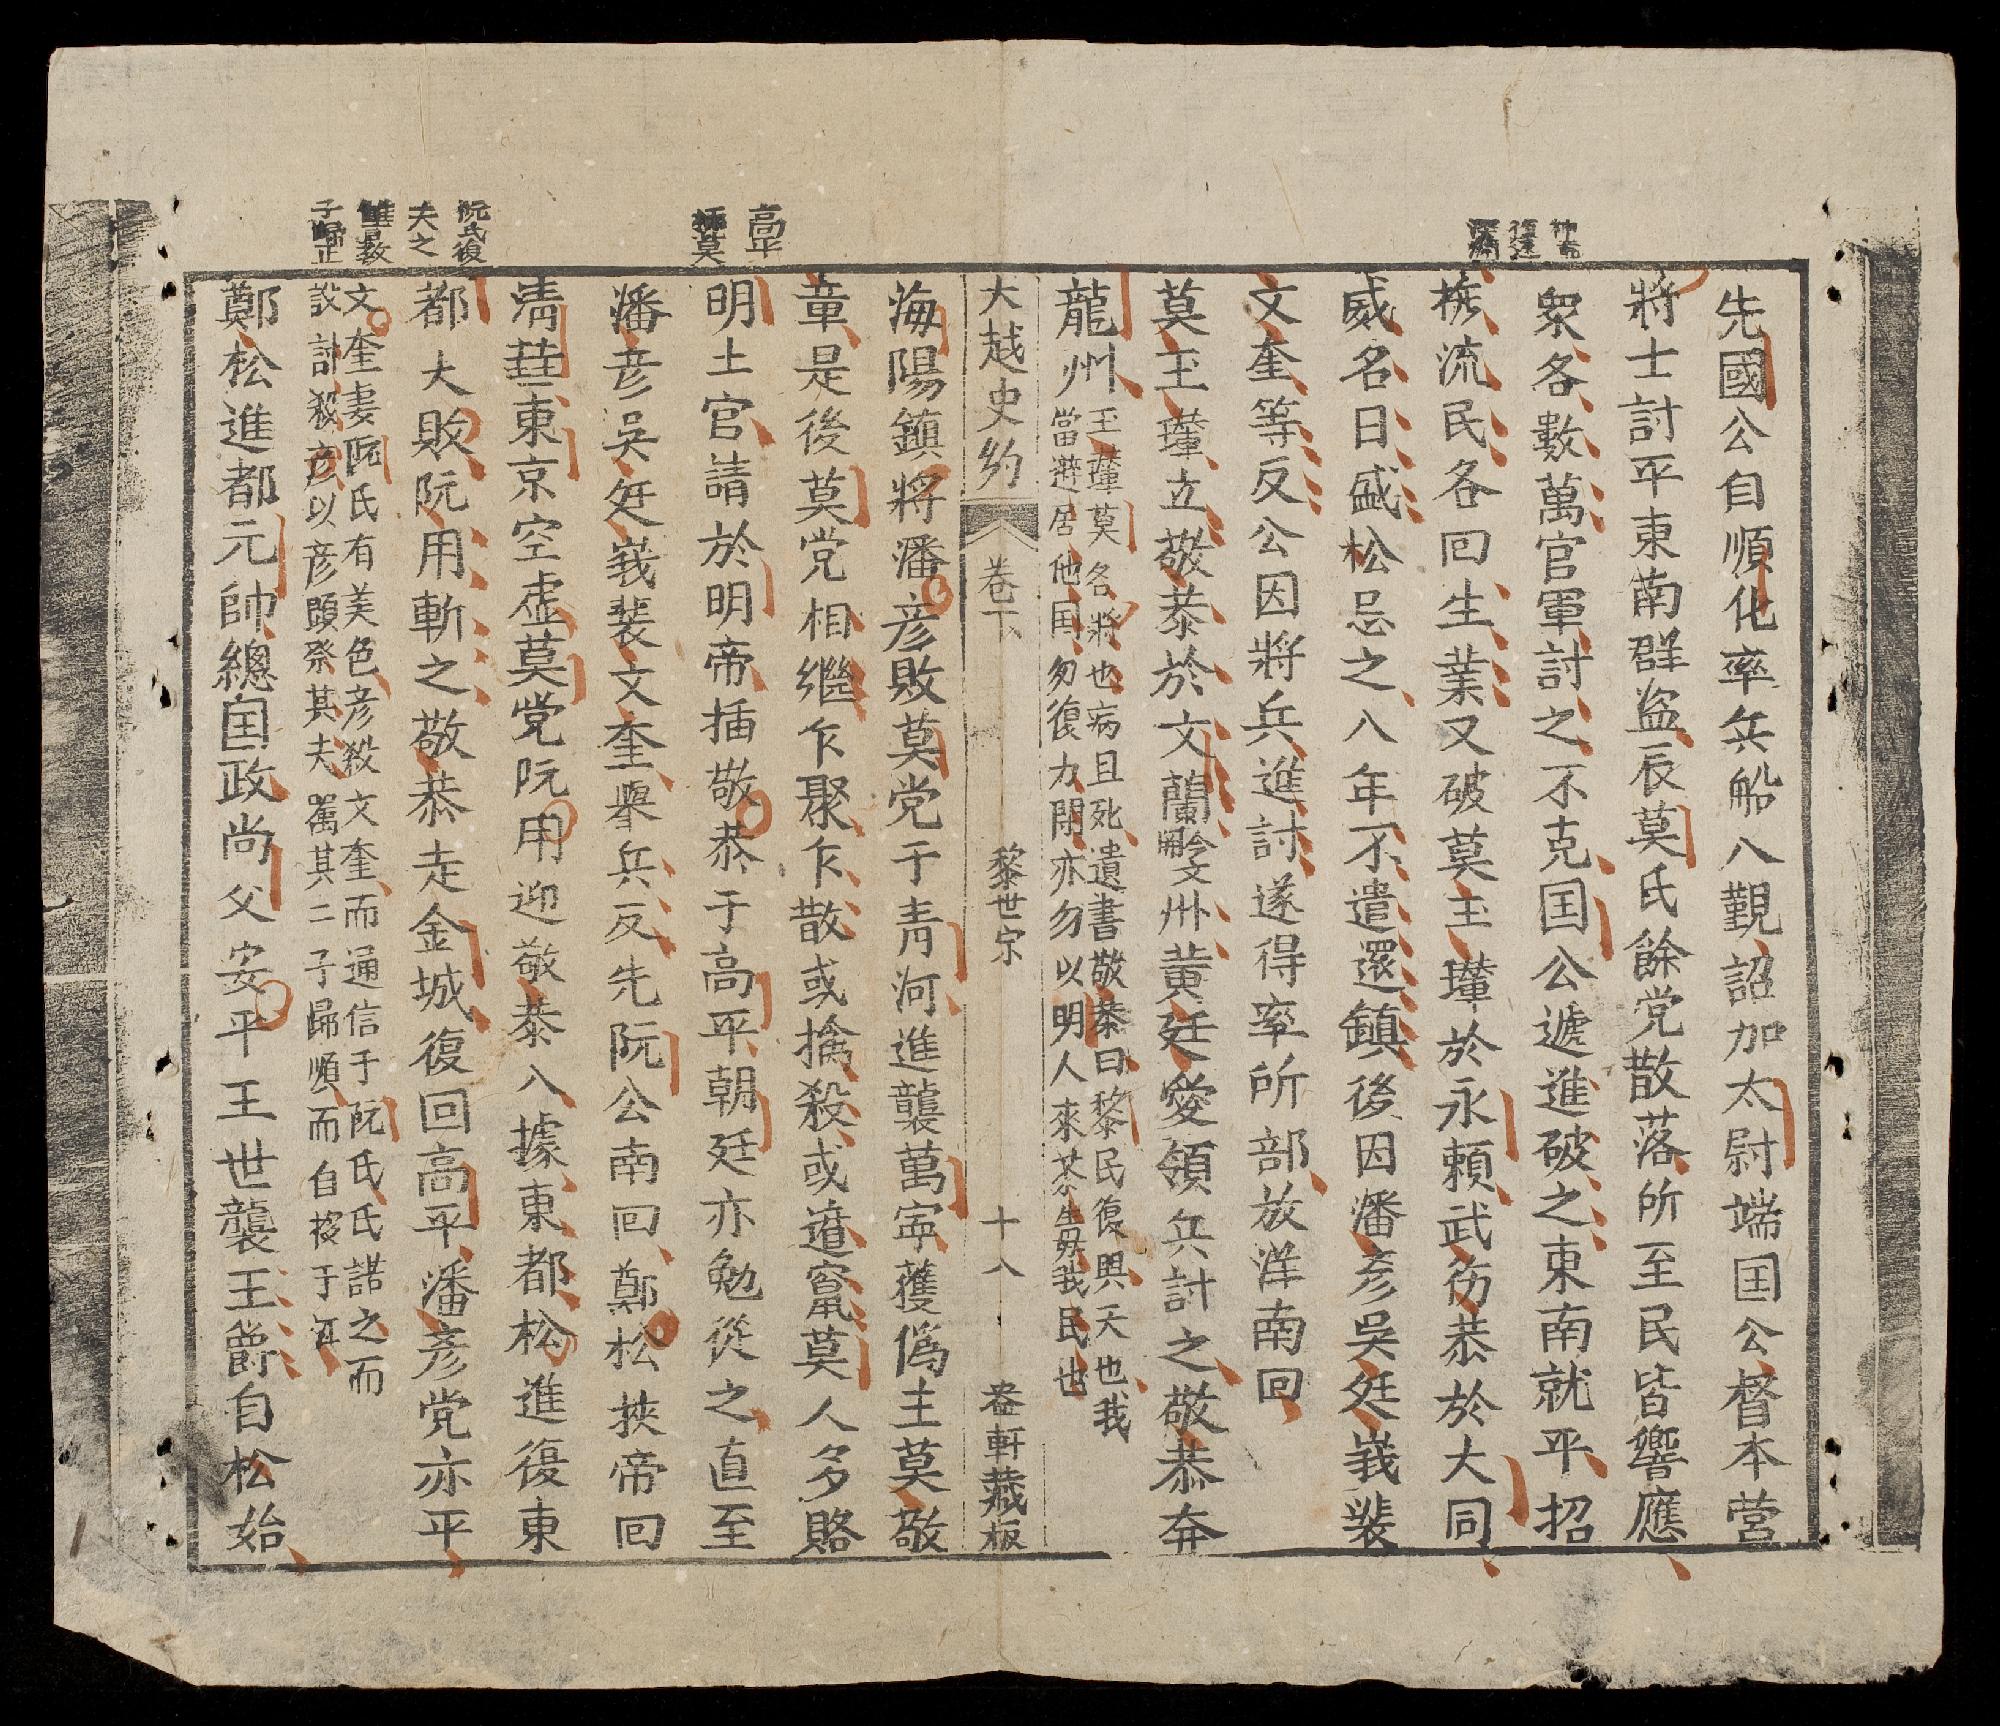 先國公自順化率兵船入覲詔加太尉端国公督本营
將士討平東南群盗辰莫氏餘党散落所至民皆響應
衆各數萬官軍討之不克国公遞進破之東南就平招
撫流民各回生業又破莫玉璍於永賴武伤恭於大同
威名日盛松忌之八年不遣還鎮後因潘彦吳廷峩裴
文奎等反公因將兵進討遂得率所部放洋南回
莫玉璍立敬恭於文蘭文州黄廷愛領兵討之敬恭奔
龍州
玉璍莫名將也病且死遺書敬恭曰黎民復興天也我
當避居他国勿復力鬪亦勿以明人來荼毒我民也
大越史約 卷下 黎世宗 十八 軒藏板
海陽鎮將潘彦敗莫党于青河進襲萬寧獲僞主莫敬
章是後莫党相継乍聚乍散或擒殺或遁竄莫人多賂
明土官請於明帝插敬恭于高平朝廷亦勉從之直至
潘彦吳廷峩裴文奎舉兵反先阮公南回鄭松挾帝回
清華東京空虚莫党阮用迎敬恭入據東都松進復東
都大敗阮用斬之敬恭走金城復回高平潘彦党亦平
文奎妻阮氏有美色彦殺文奎而通信于阮氏氏諾之而
設計殺彦以彦頭祭其夫属其二子歸順而自投于江
鄭松進都元帥總国政尚父安平王世襲王爵自松始
高平
插莫
阮氏復
夫之
讐教
子歸正